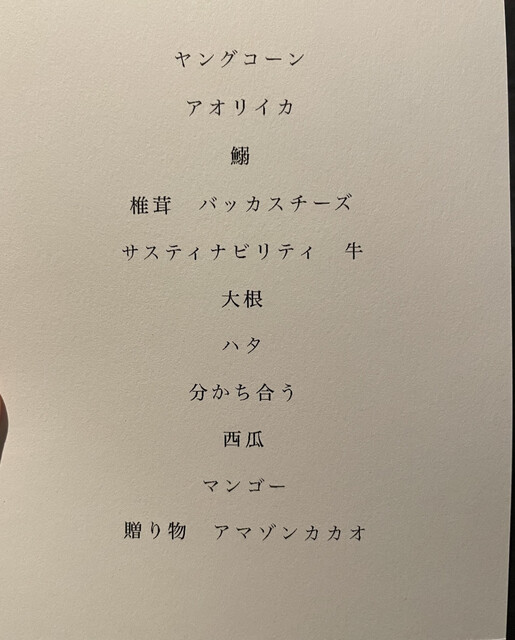 ヤングコーン
アオリイカ
鰯
椎茸　バッカスチーズ
サスティナビリティ　牛
大根
ハタ
分かち合う
西瓜
マンゴー
贈り物　アマゾンカカオ